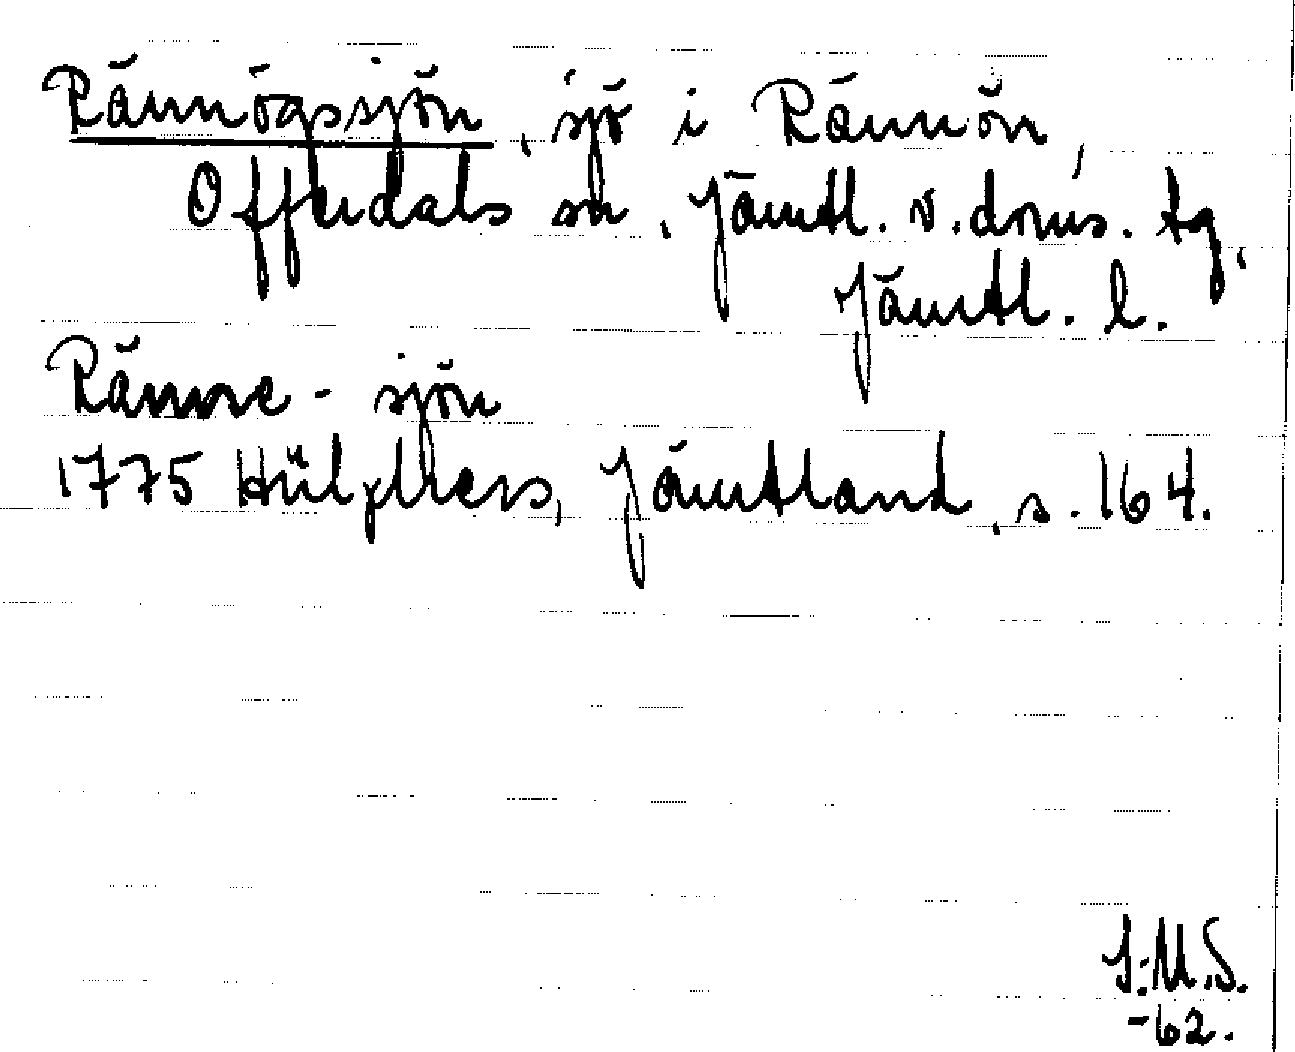 Rännögssjön, sjö i Rännön,
Offerdals sn, Jämtl. v. doms. tg,
Jämtl. l.
Ränne-sjön
1775 Hülphers, Jämtland, s. 164.
I.M.S.
-62.